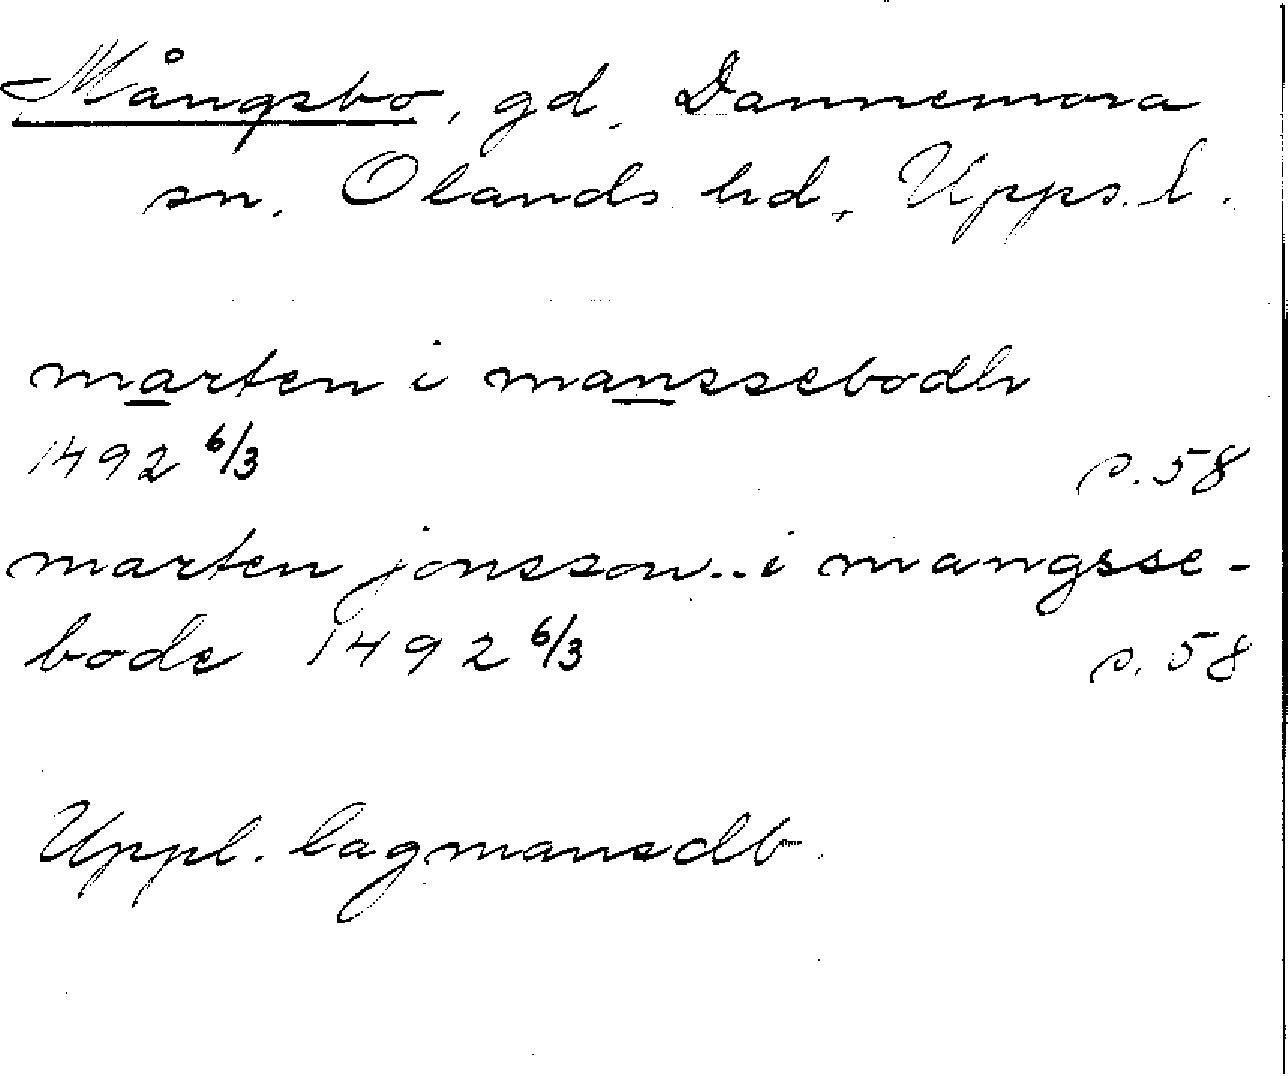 Mångsbo, gd, Dannemora
sn, Olands hd, Upps. l.
marten i manssebodh
1492 6/3 s. 58
marten jonsson.. i mangsse-
bode 1492 6/3 s. 58
Uppl. lagmansdb.